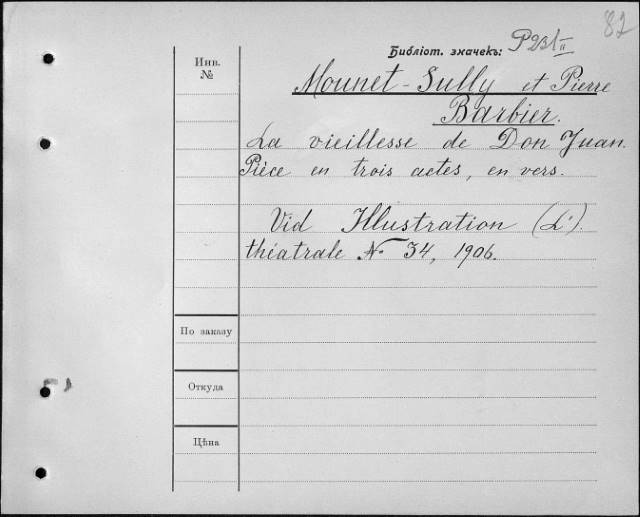 82
Библіот. значекъ: P231 II
Инв.
№
Mounet-Sully et Pierre
Barbier.
La vieillesse de Don Juan.
Pièce en trois actes, en vers.
Vid Illustration (L').
théatrale № 34, 1906.
По заказу
Откуда
Цѣна